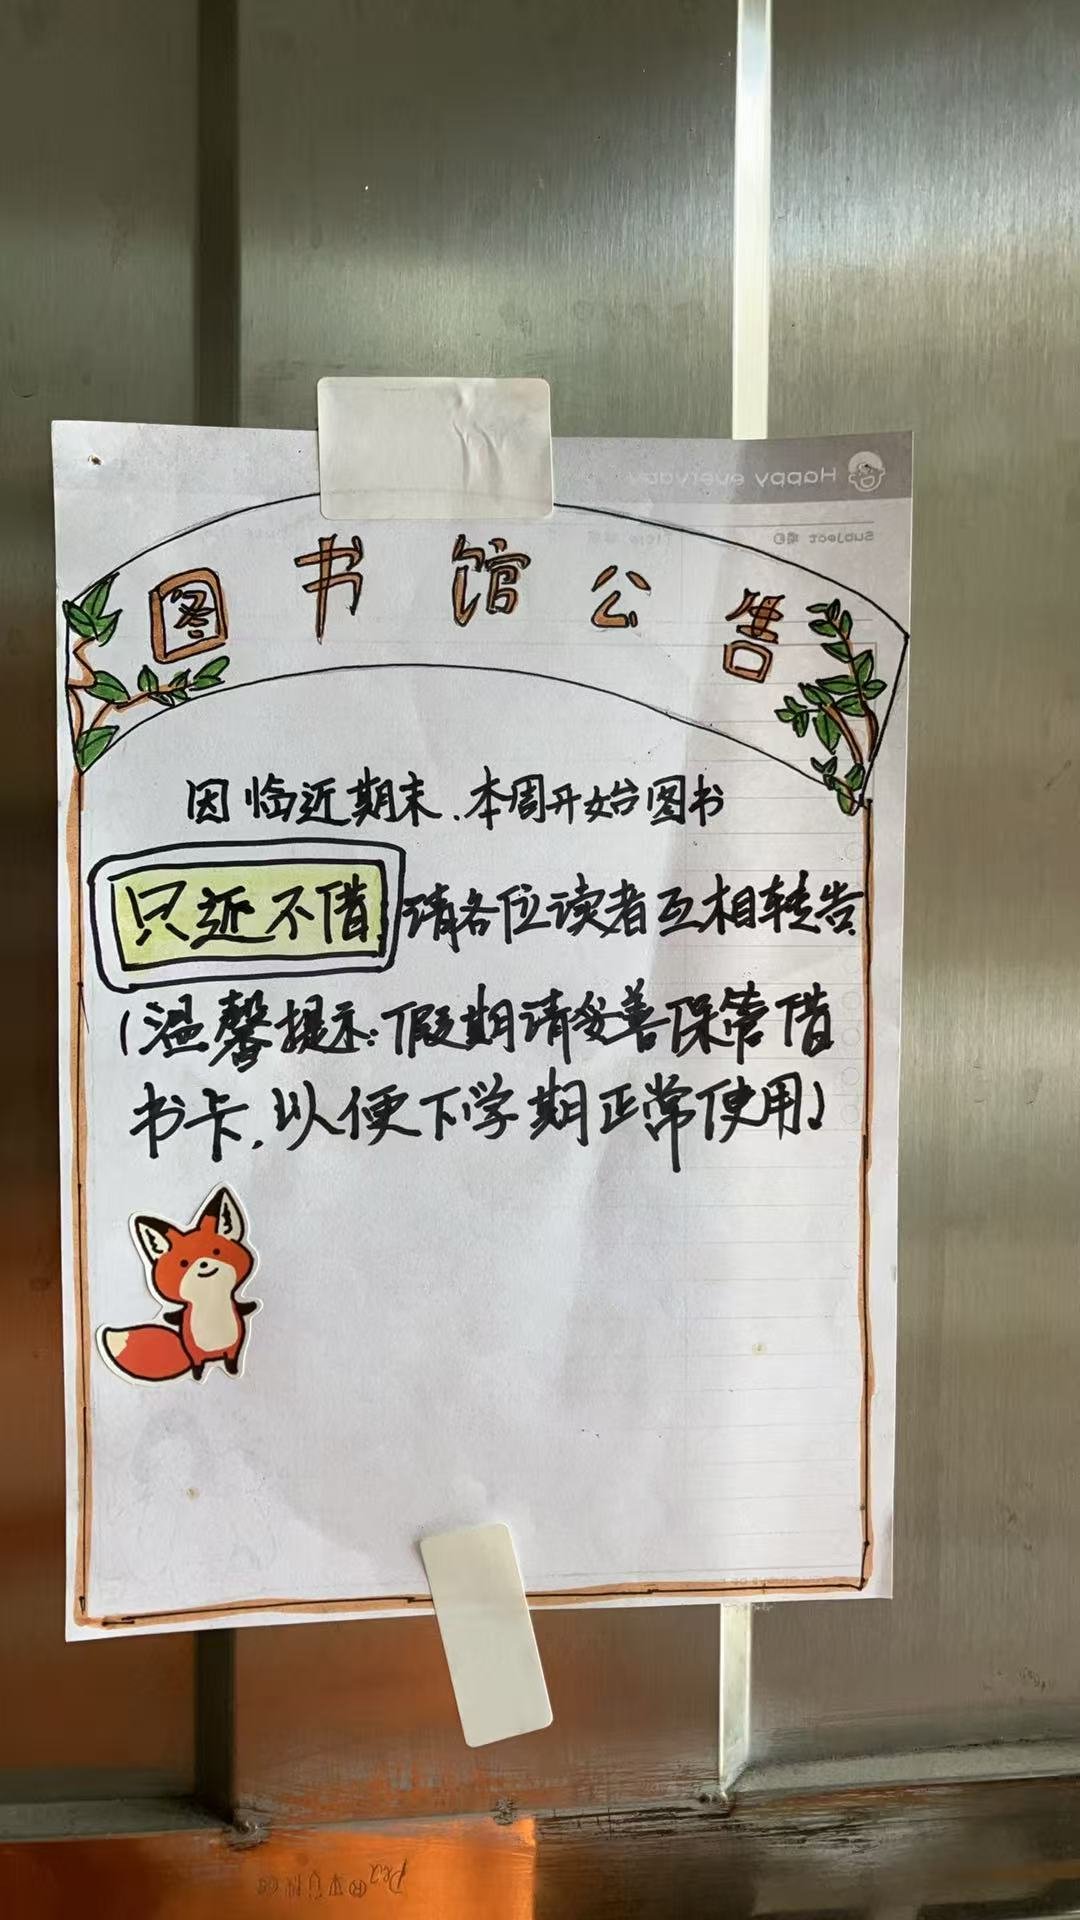 Happy everyday
Subject
图书馆公告
因临近期末、本周开始图书
只还不借 请各位读者互相转告
(温馨提示:假期请妥善保管借
书卡,以便下学期正常使用)